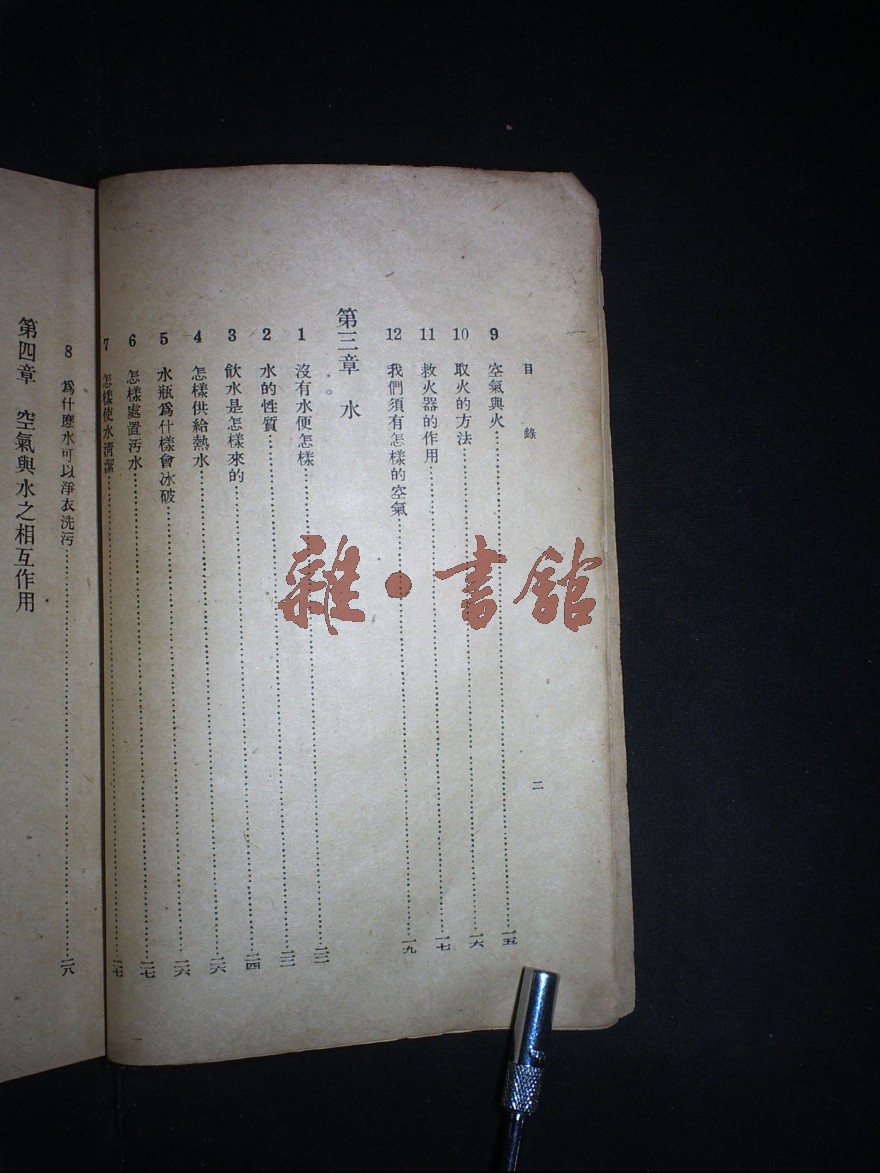 目錄
二
9 空氣與火 一五
10 取火的方法 一六
11 救火器的作用 一七
12 我們須有怎樣的空氣 一九
第三章 水
1 沒有水便怎樣
2 水的性質
3 飲水是怎樣來的 二四
4 怎樣供給熱水 二六
5 水瓶爲什樣會冰破 二六
6 怎樣處置汚水 二七
7 怎樣使水清潔 二七
8 爲什麽水可以淨衣洗汚 二八
第四章 空氣與水之相互作用
雜·書館